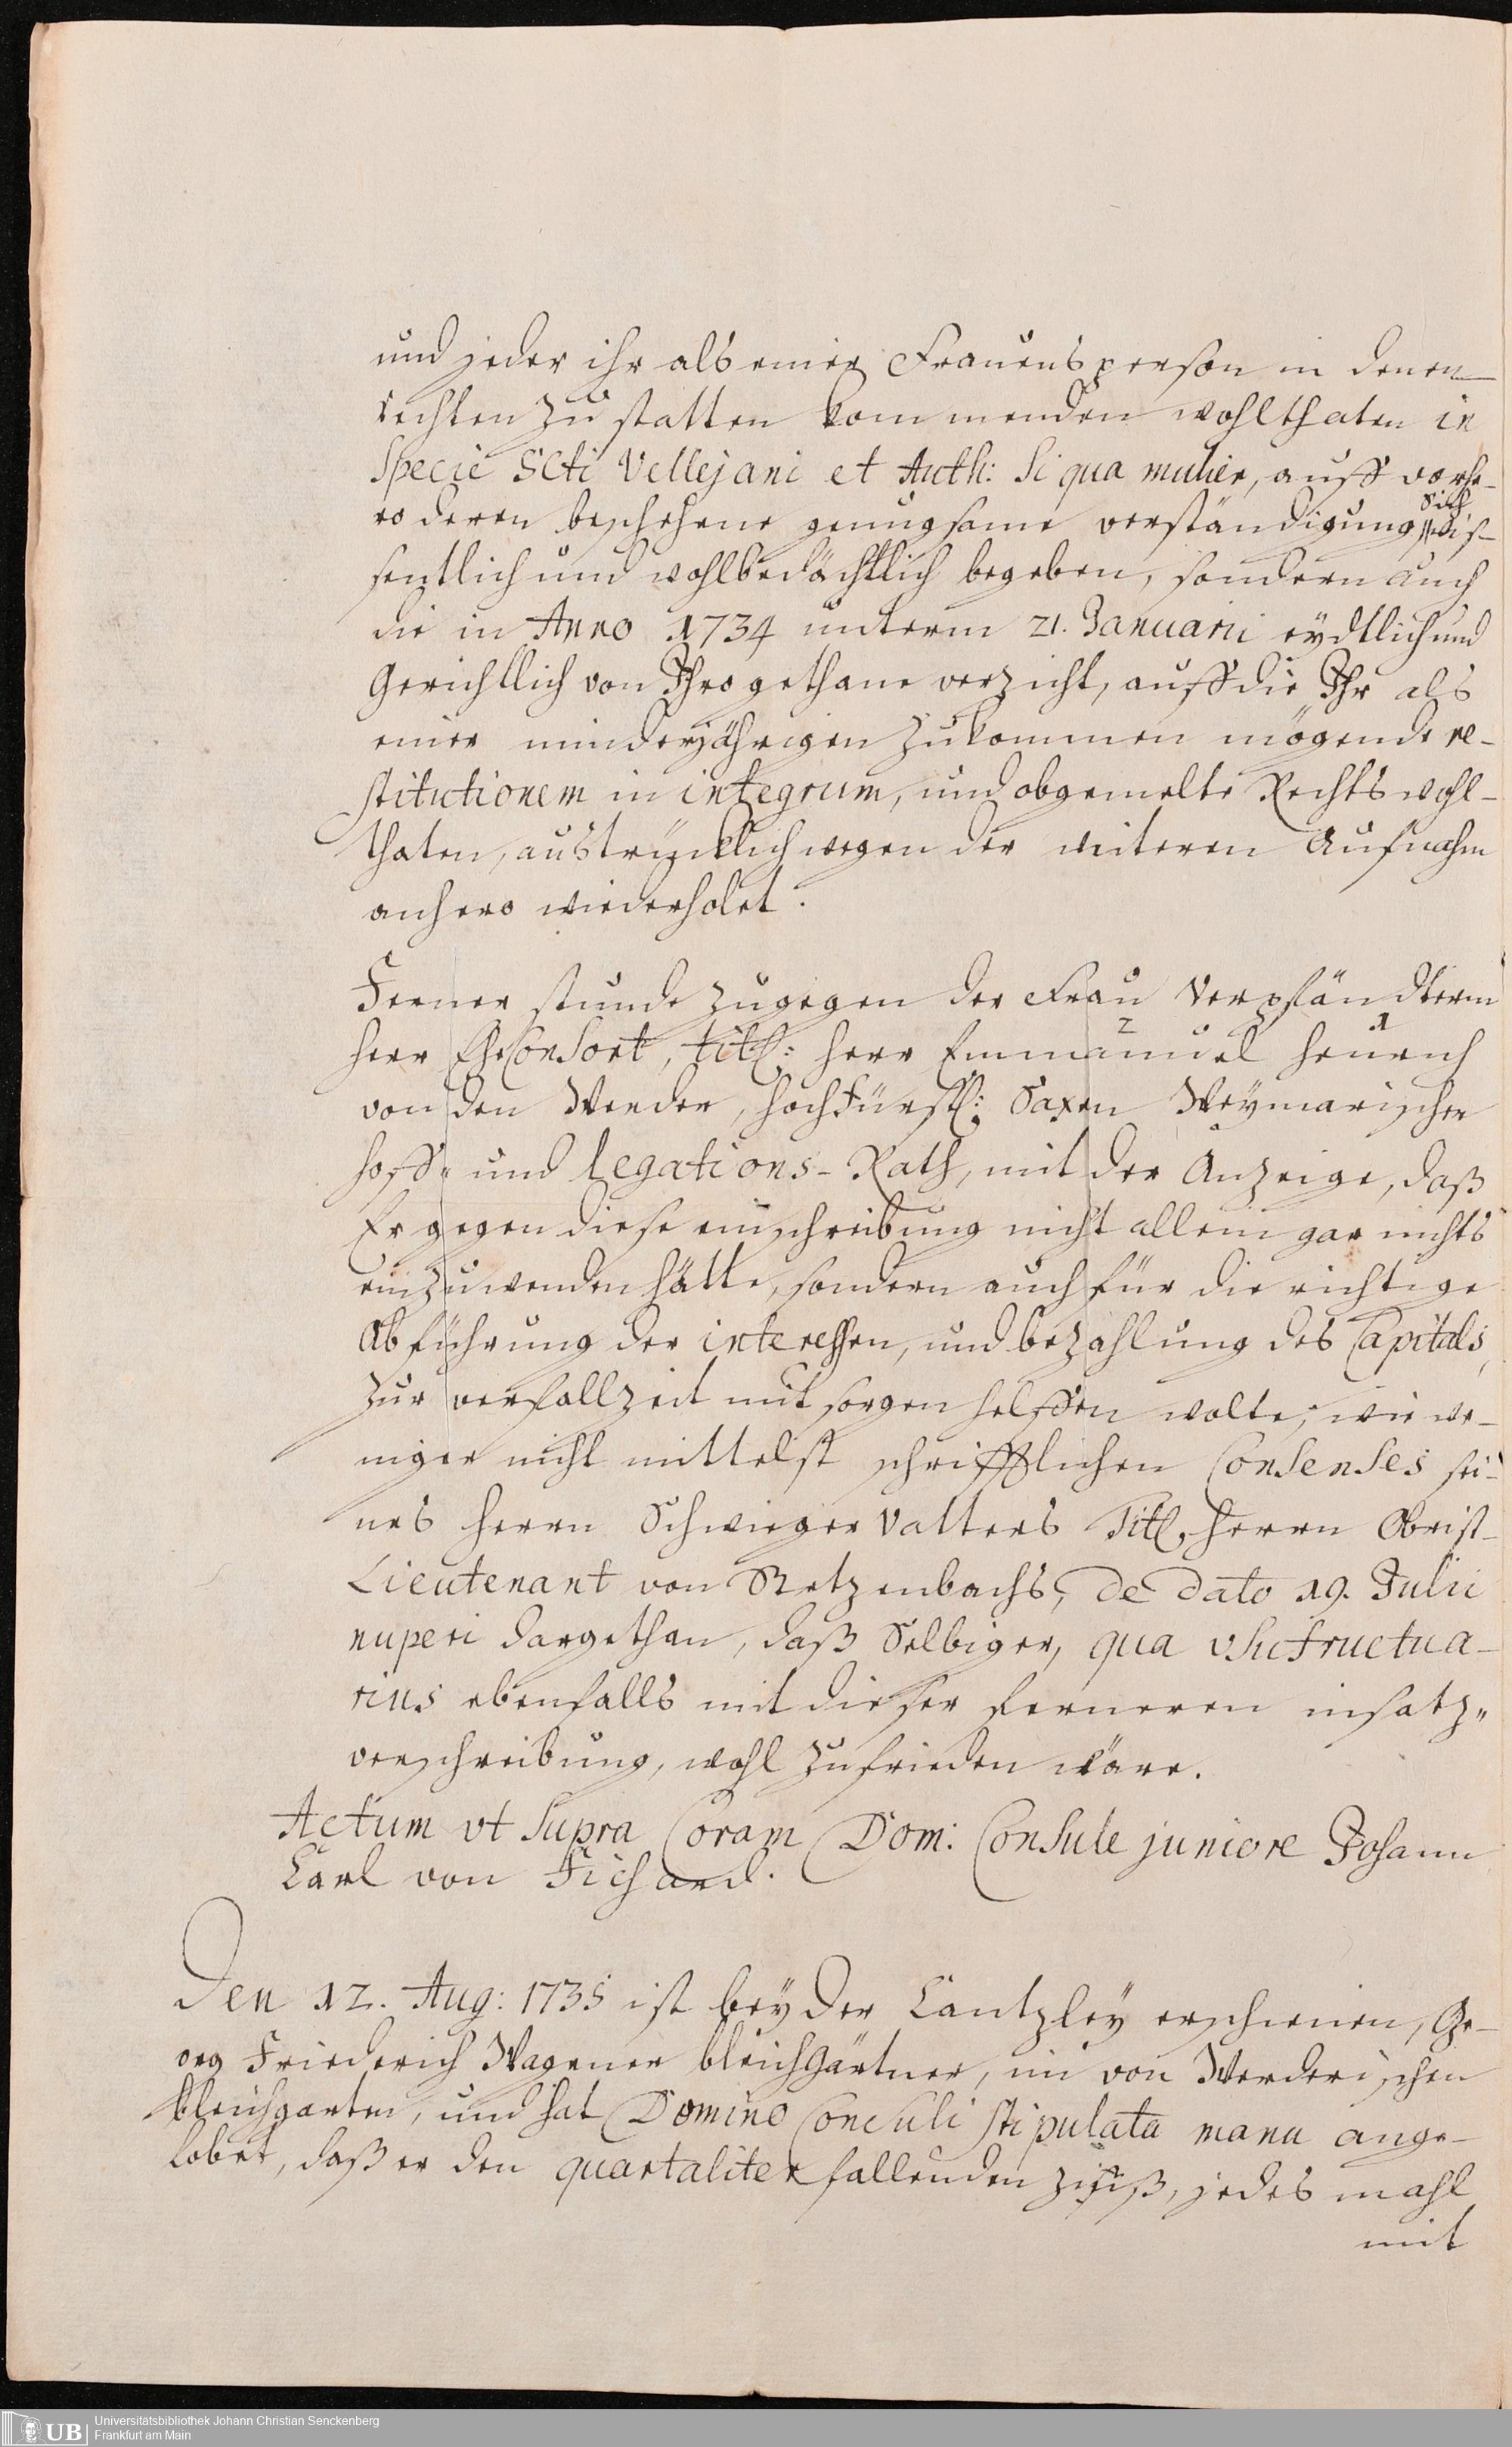 und jeder ihr als einer Frauens person in denen
rechten zu statten kommenden wohlthaten in
Specie SCti Vellejani et Auth: Si qua mulier, auff vorhe-
ro deren beschehene genugsame verständigung, sich wis-
sentlich und wohlbedächtlich begeben, sondern auch
die in Anno 1734 unterm 21. Januarii eydtlich und
Gerichtlich von Ihro gethane verzicht, auff die Ihr als
einer minderjährigen zukommen mögende re-
stitutionem in integrum, und obgemelte Rechts wohl-
thaten, austrücklich wegen der weiteren Aufnahm
anhero wiederholet.
Ferner stunde zugegen der Frau Verpfändterin
Herr EheConsort, titl: Herr Emmanuel Henrich
2 1
von den Werder, Hochfürstl: Saxen Weymarischer
Hoff- und legations-Rath, mit der Anzeige, daß
Er gegen diese einschreibung nicht allein gar nichts
einzuwenden hätte, sondern auch für die richtige
Abführung der interessen, und bezahlung des Capitals,
zur verfallzeit mit sorgen helffen wolte; wie we-
niger nicht mittelst schrifftlichen Consenses sei-
nes Herrn Schwieger Vatters Titl. Herrn Obrist-
Lieutenant von Retzenbachs, de dato 19. Julii
nuperi dargethan, daß Selbiger, qua usufructua-
rius ebenfalls mit dieser ferneren insatz-
verschreibung, wohl zufrieden wäre.
Actum ut Supra Coram Dom: Consule juniore Johann
Carl von Fichard.
Den 12. Aug: 1735 ist bey der Cantzley erschienen, Ge-
org Friederich Wagener bleichgärtner, im von Werderischen
bleichgarten, und hat Domino Consuli stipulata manu ange-
lobet, daß er den quartaliter fallenden zinß, jedes mahl
mit
Universitätsbibliothek Johann Christian Senckenberg
Frankfurt am Main
UB